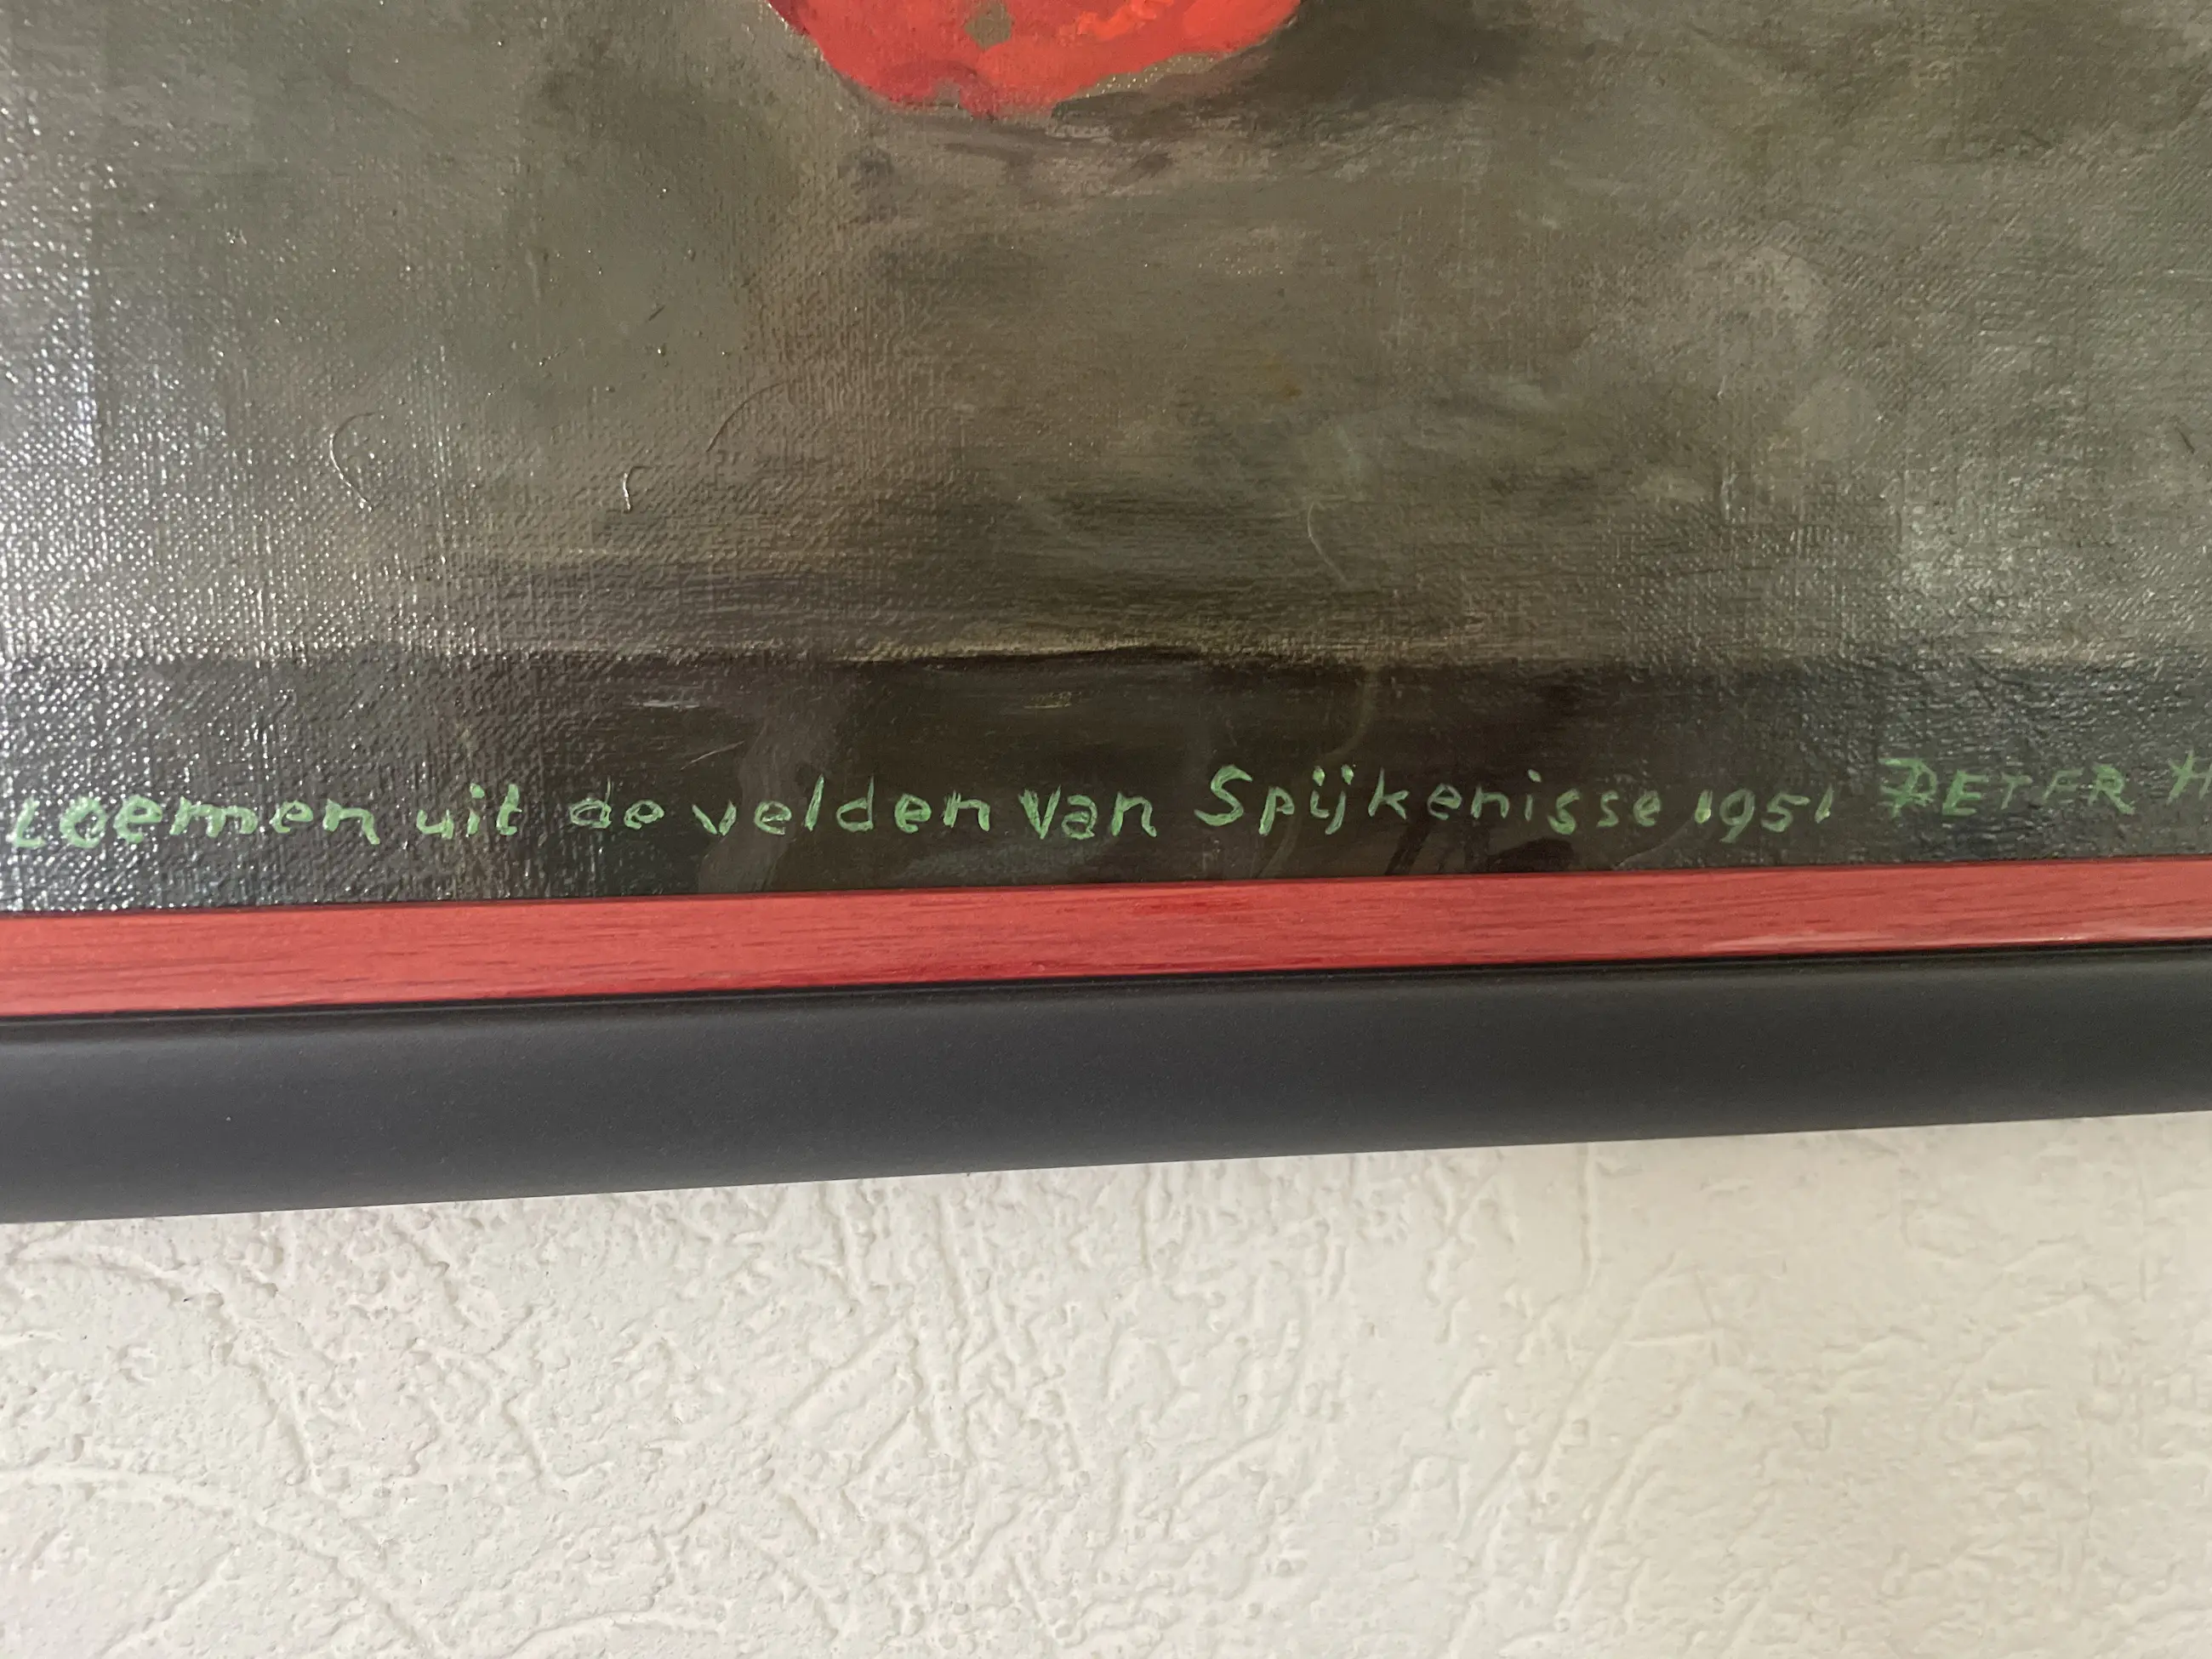 loemen uit de velden van Spijkenisse 1951 PETER H